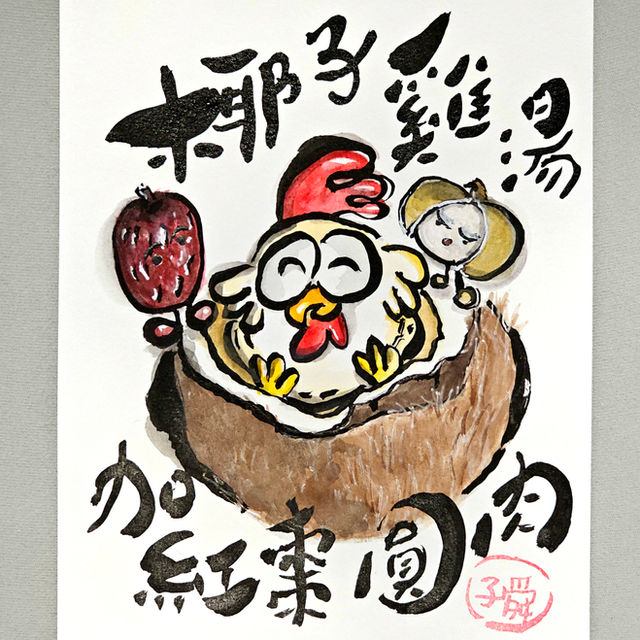 椰子雞湯
加紅棗圓肉